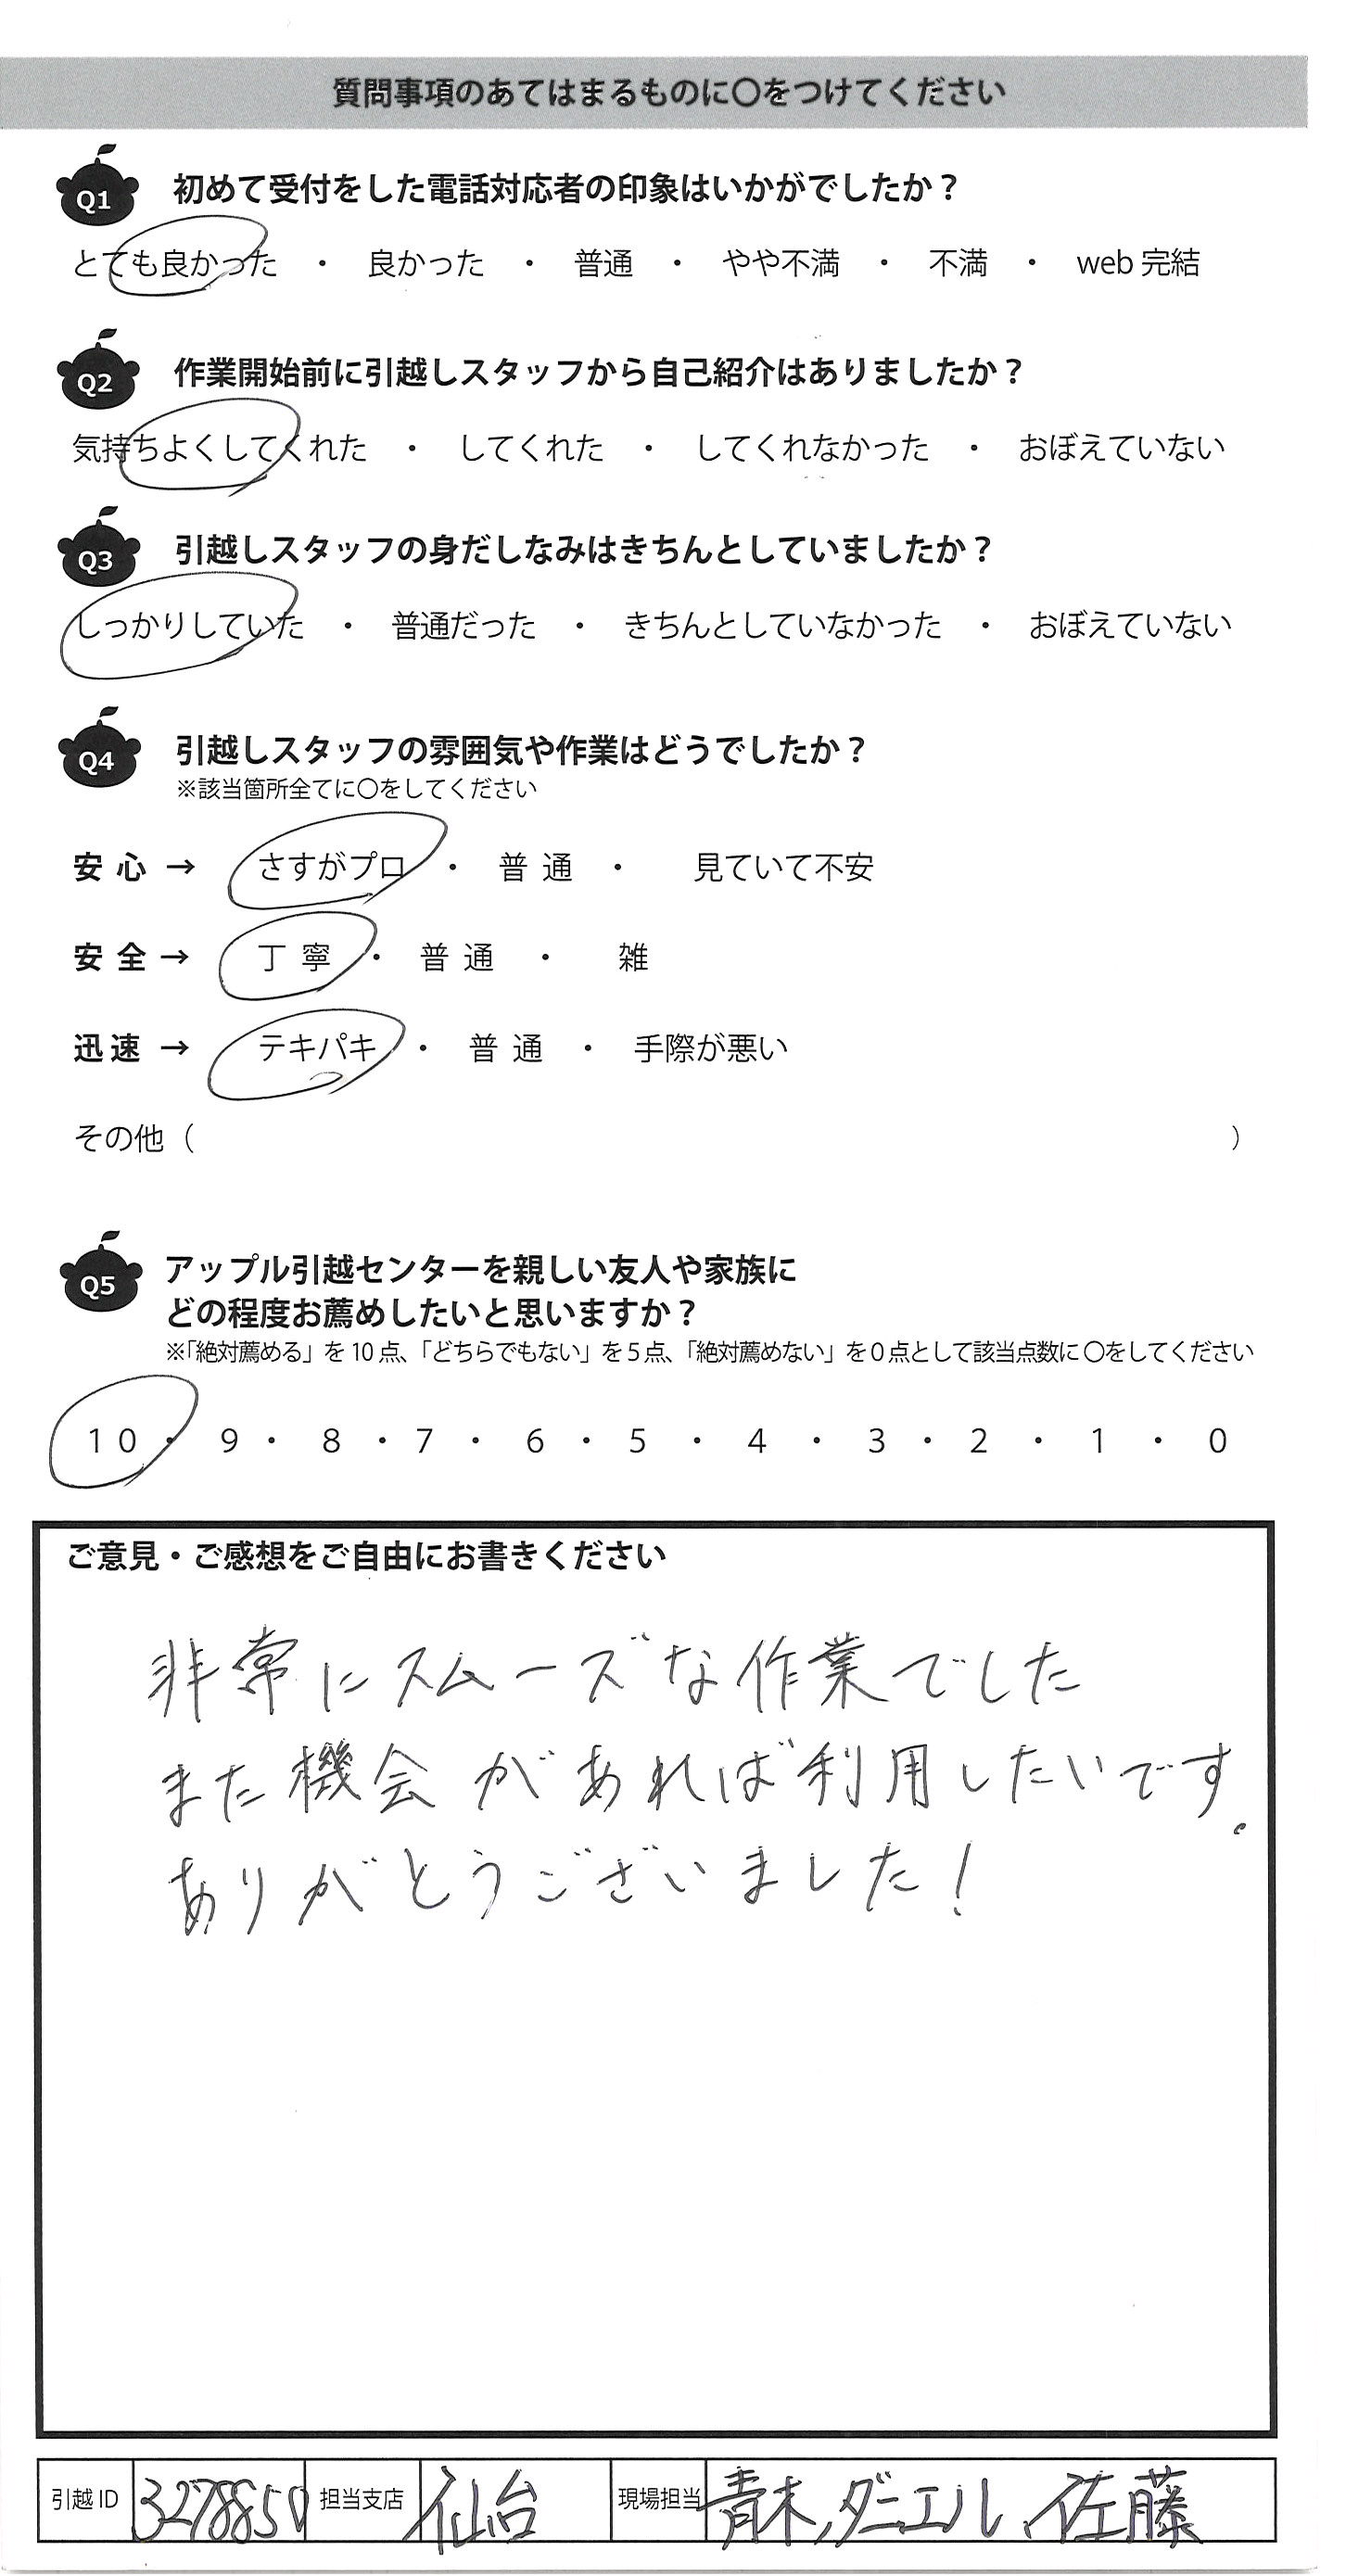 質問事項のあてはまるものに〇をつけてください
Q1 初めて受付をした電話対応者の印象はいかがでしたか？
とても良かった ・ 良かった ・ 普通 ・ やや不満 ・ 不満 ・ web 完結
Q2 作業開始前に引越しスタッフから自己紹介はありましたか？
気持ちよくしてくれた ・ してくれた ・ してくれなかった ・ おぼえていない
Q3 引越しスタッフの身だしなみはきちんとしていましたか？
しっかりしていた ・ 普通だった ・ きちんとしていなかった ・ おぼえていない
Q4 引越しスタッフの雰囲気や作業はどうでしたか？
※該当箇所全てに〇をしてください
安心 → さすがプロ ・ 普通 ・ 見ていて不安
安全 → 丁寧 ・ 普通 ・ 雑
迅速 → テキパキ ・ 普通 ・ 手際が悪い
その他（ ）
Q5 アップル引越センターを親しい友人や家族に
どの程度お薦めしたいと思いますか？
※「絶対薦める」を 10 点、「どちらでもない」を 5 点、「絶対薦めない」を 0 点として該当点数に 〇をしてください
10 ・ 9 ・ 8 ・ 7 ・ 6 ・ 5 ・ 4 ・ 3 ・ 2 ・ 1 ・ 0
ご意見・ご感想をご自由にお書きください
非常にスムーズな作業でした
また機会があれば利用したいです。
ありがとうございました！
引越 ID 3278850 担当支店 仙台 現場担当 青木、ダニエル、佐藤